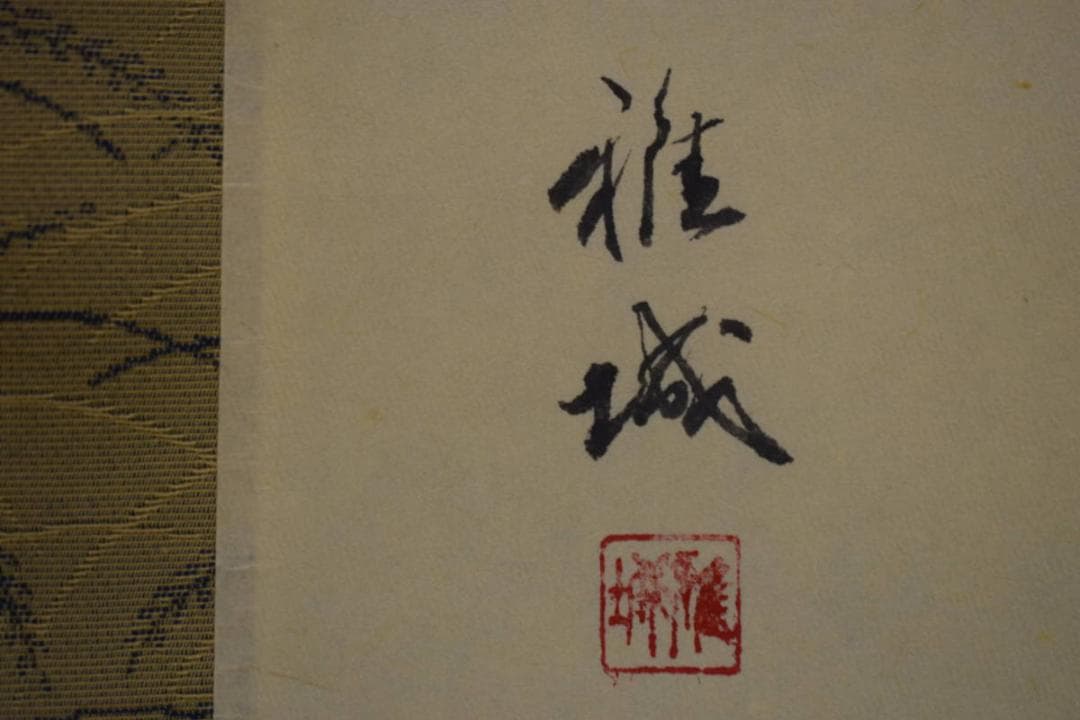 雅城
雅城